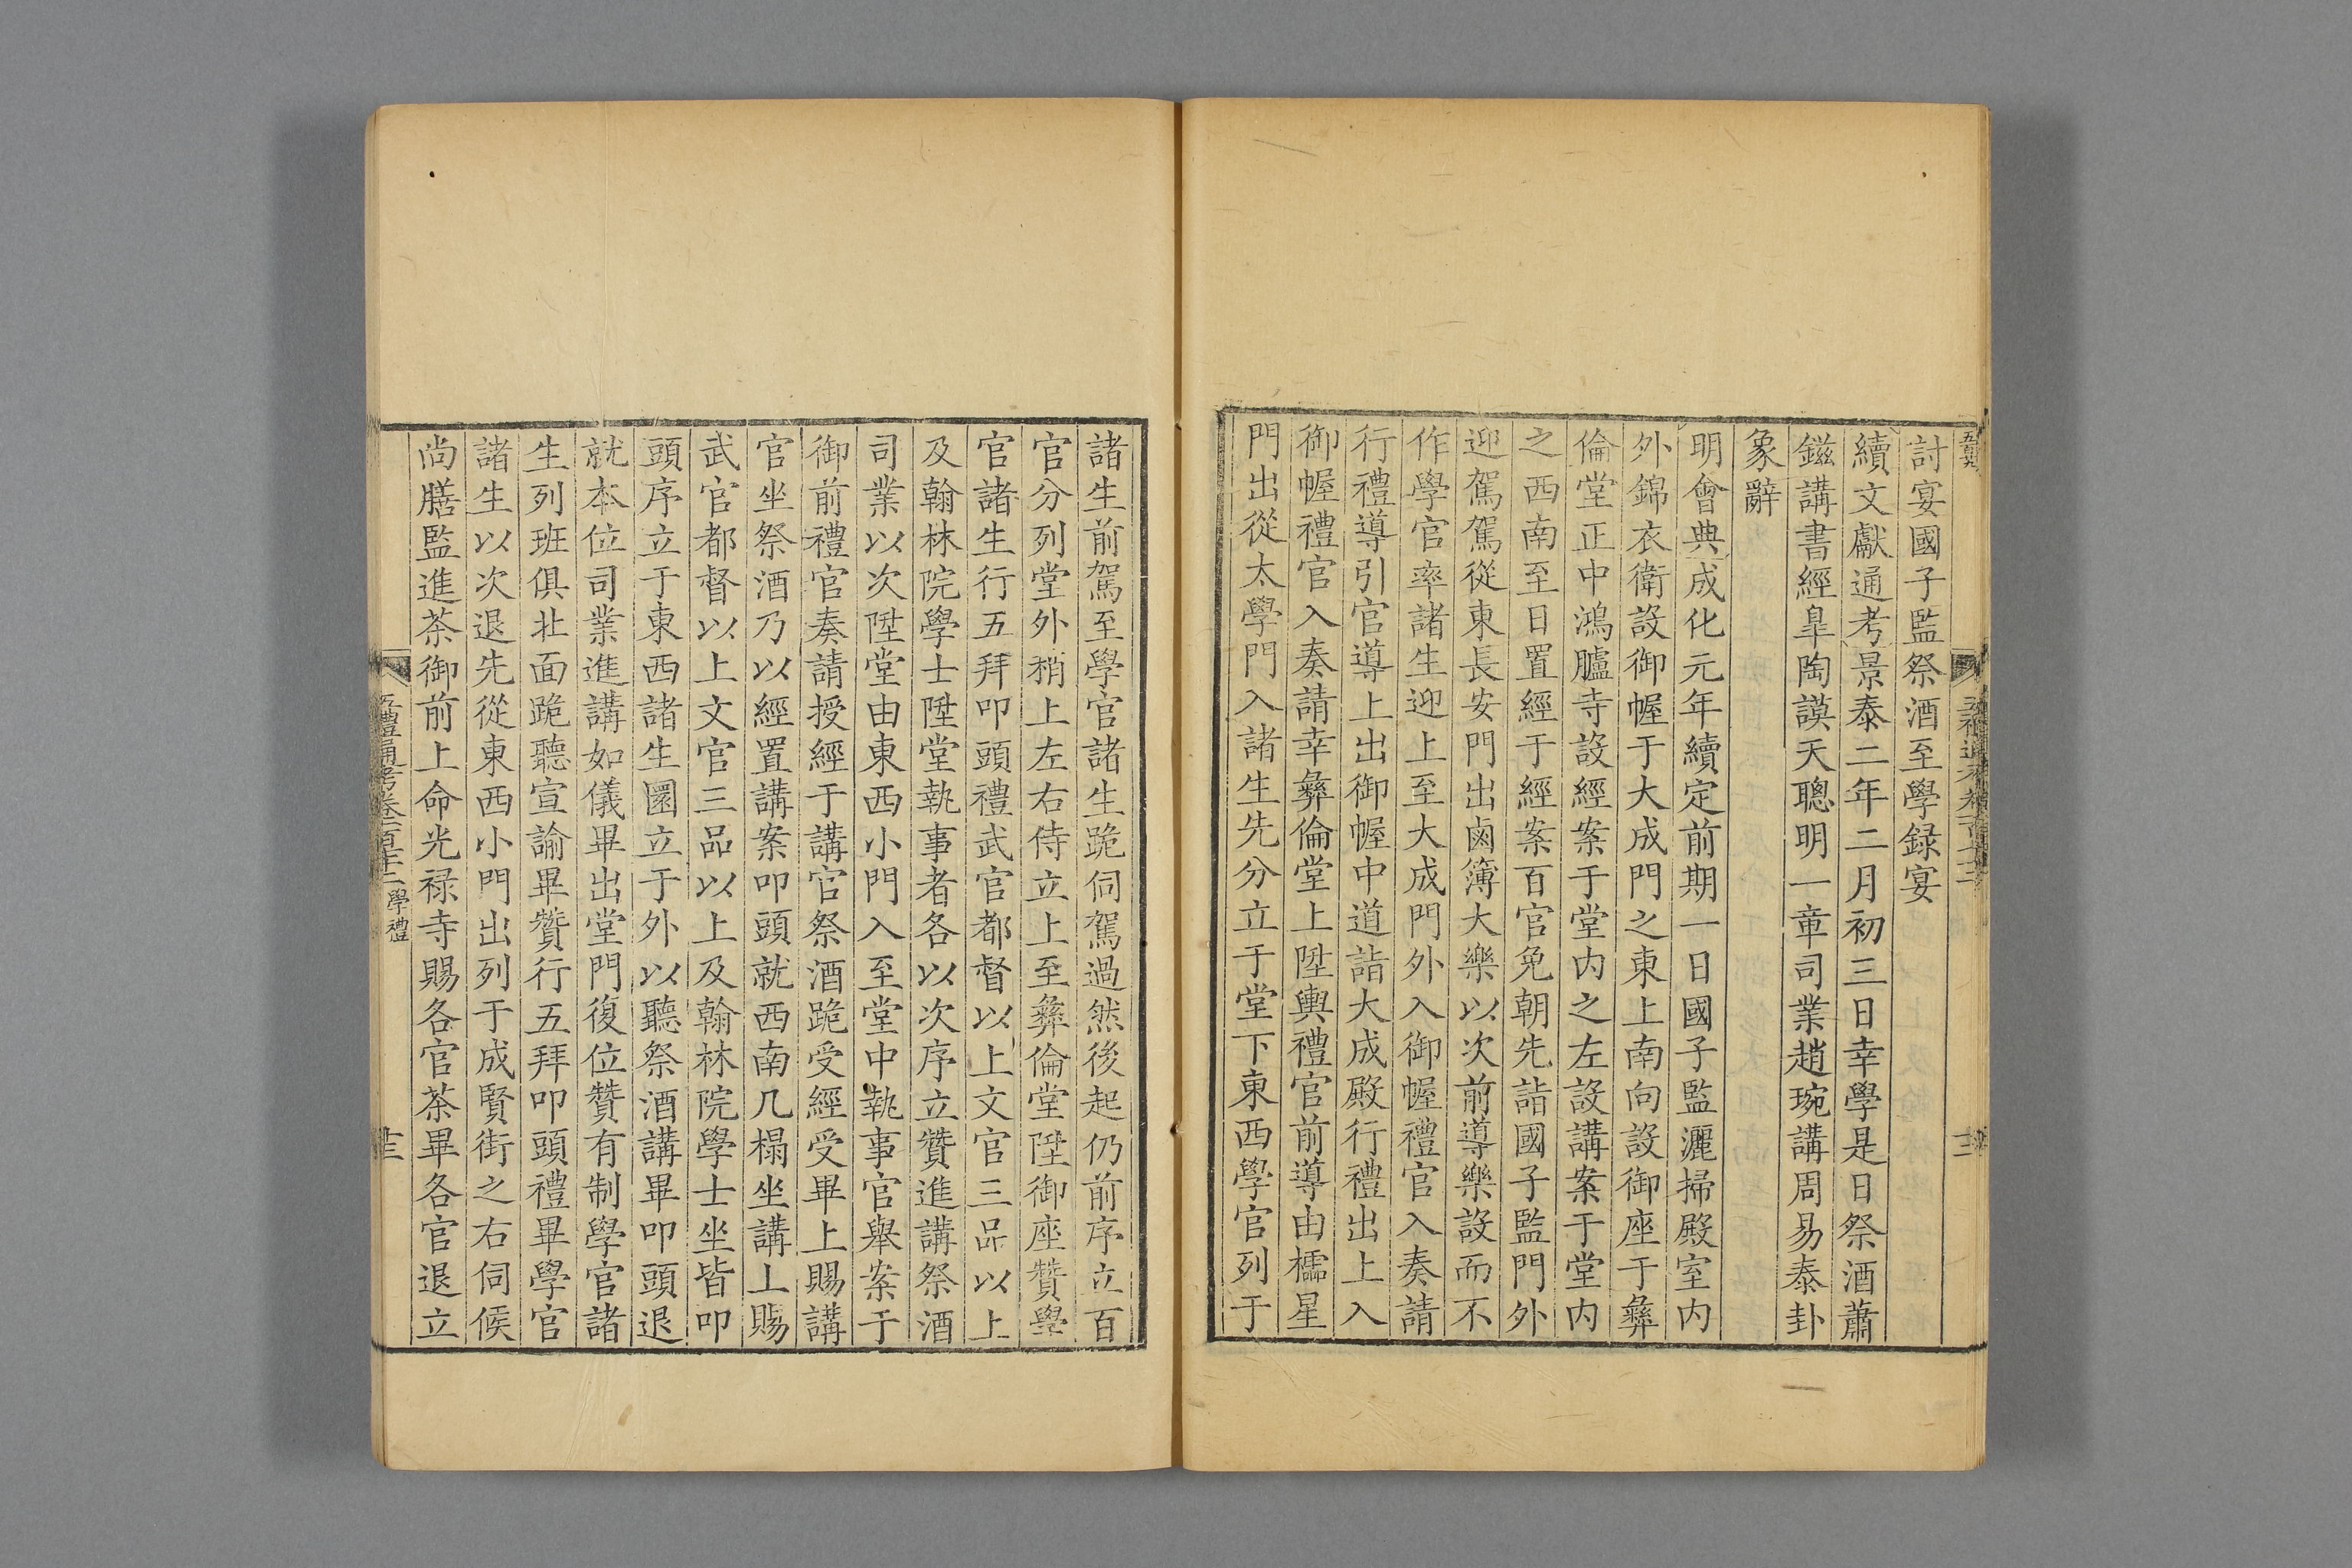 討宴國子監祭酒至學録宴
續文獻通考景泰二年二月初三日幸學是日祭酒蕭
鎡講書經臯陶謨天聰明一章司業趙琬講周易泰卦
象辭
明會典成化元年續定前期一日國子監灑掃殿室内
外錦衣衛設御幄于大成門之東上南向設御座于彝
倫堂正中鴻臚寺設經案于堂内之左設講案于堂内
之西南至日置經于經案百官免朝先詣國子監門外
迎駕駕從東長安門出鹵簿大樂以次前導樂設而不
作學官率諸生迎上至大成門外入御幄禮官入奏請
行禮導引官導上出御幄中道詣大成殿行禮出上入
御幄禮官入奏請幸彝倫堂上陞輿禮官前導由櫺星
門出從太學門入諸生先分立于堂下東西學官列于
諸生前駕至學官諸生跪伺駕過然後起仍前序立百
官分列堂外稍上左右侍立上至彝倫堂陞御座贊學
官諸生行五拜叩頭禮武官都督以上文官三品以上
及翰林院學士陞堂執事者各以次序立贊進講祭酒
司業以次陞堂由東西小門入至堂中執事官舉案于
御前禮官奏請授經于講官祭酒跪受經受畢上賜講
官坐祭酒乃以經置講案叩頭就西南几榻坐講上賜
武官都督以上文官三品以上及翰林院學士坐皆叩
頭序立于東西諸生圜立于外以聽祭酒講畢叩頭退
就本位司業進講如儀畢出堂門復位贊有制學官諸
生列班俱北面跪聽宣諭畢贊行五拜叩頭禮畢學官
諸生以次退先從東西小門出列于成賢街之右伺候
尚膳監進茶御前上命光禄寺賜各官茶畢各官退立
五禮通考卷一百七十二 學禮